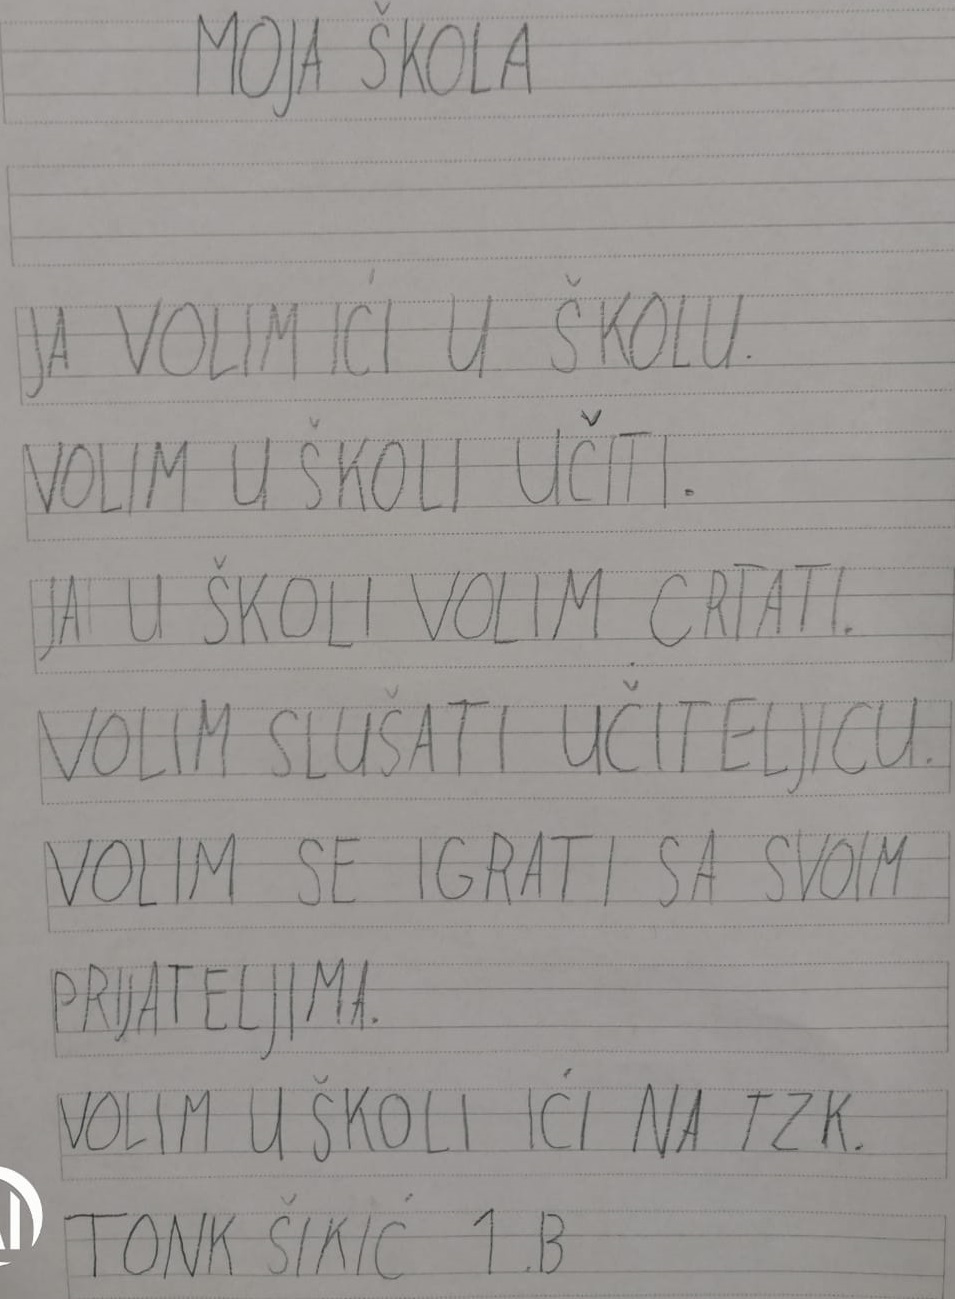 MOJA ŠKOLA
JA VOLIM IĆI U ŠKOLU.
VOLIM U ŠKOLI UČITI.
JA U ŠKOLI VOLIM CRTATI.
VOLIM SLUŠATI UČITELJICU.
VOLIM SE IGRATI SA SVOIM
PRIJATELJIMA.
VOLIM U ŠKOLI IĆI NA TZK.
TONK ŠIKIĆ 1.B